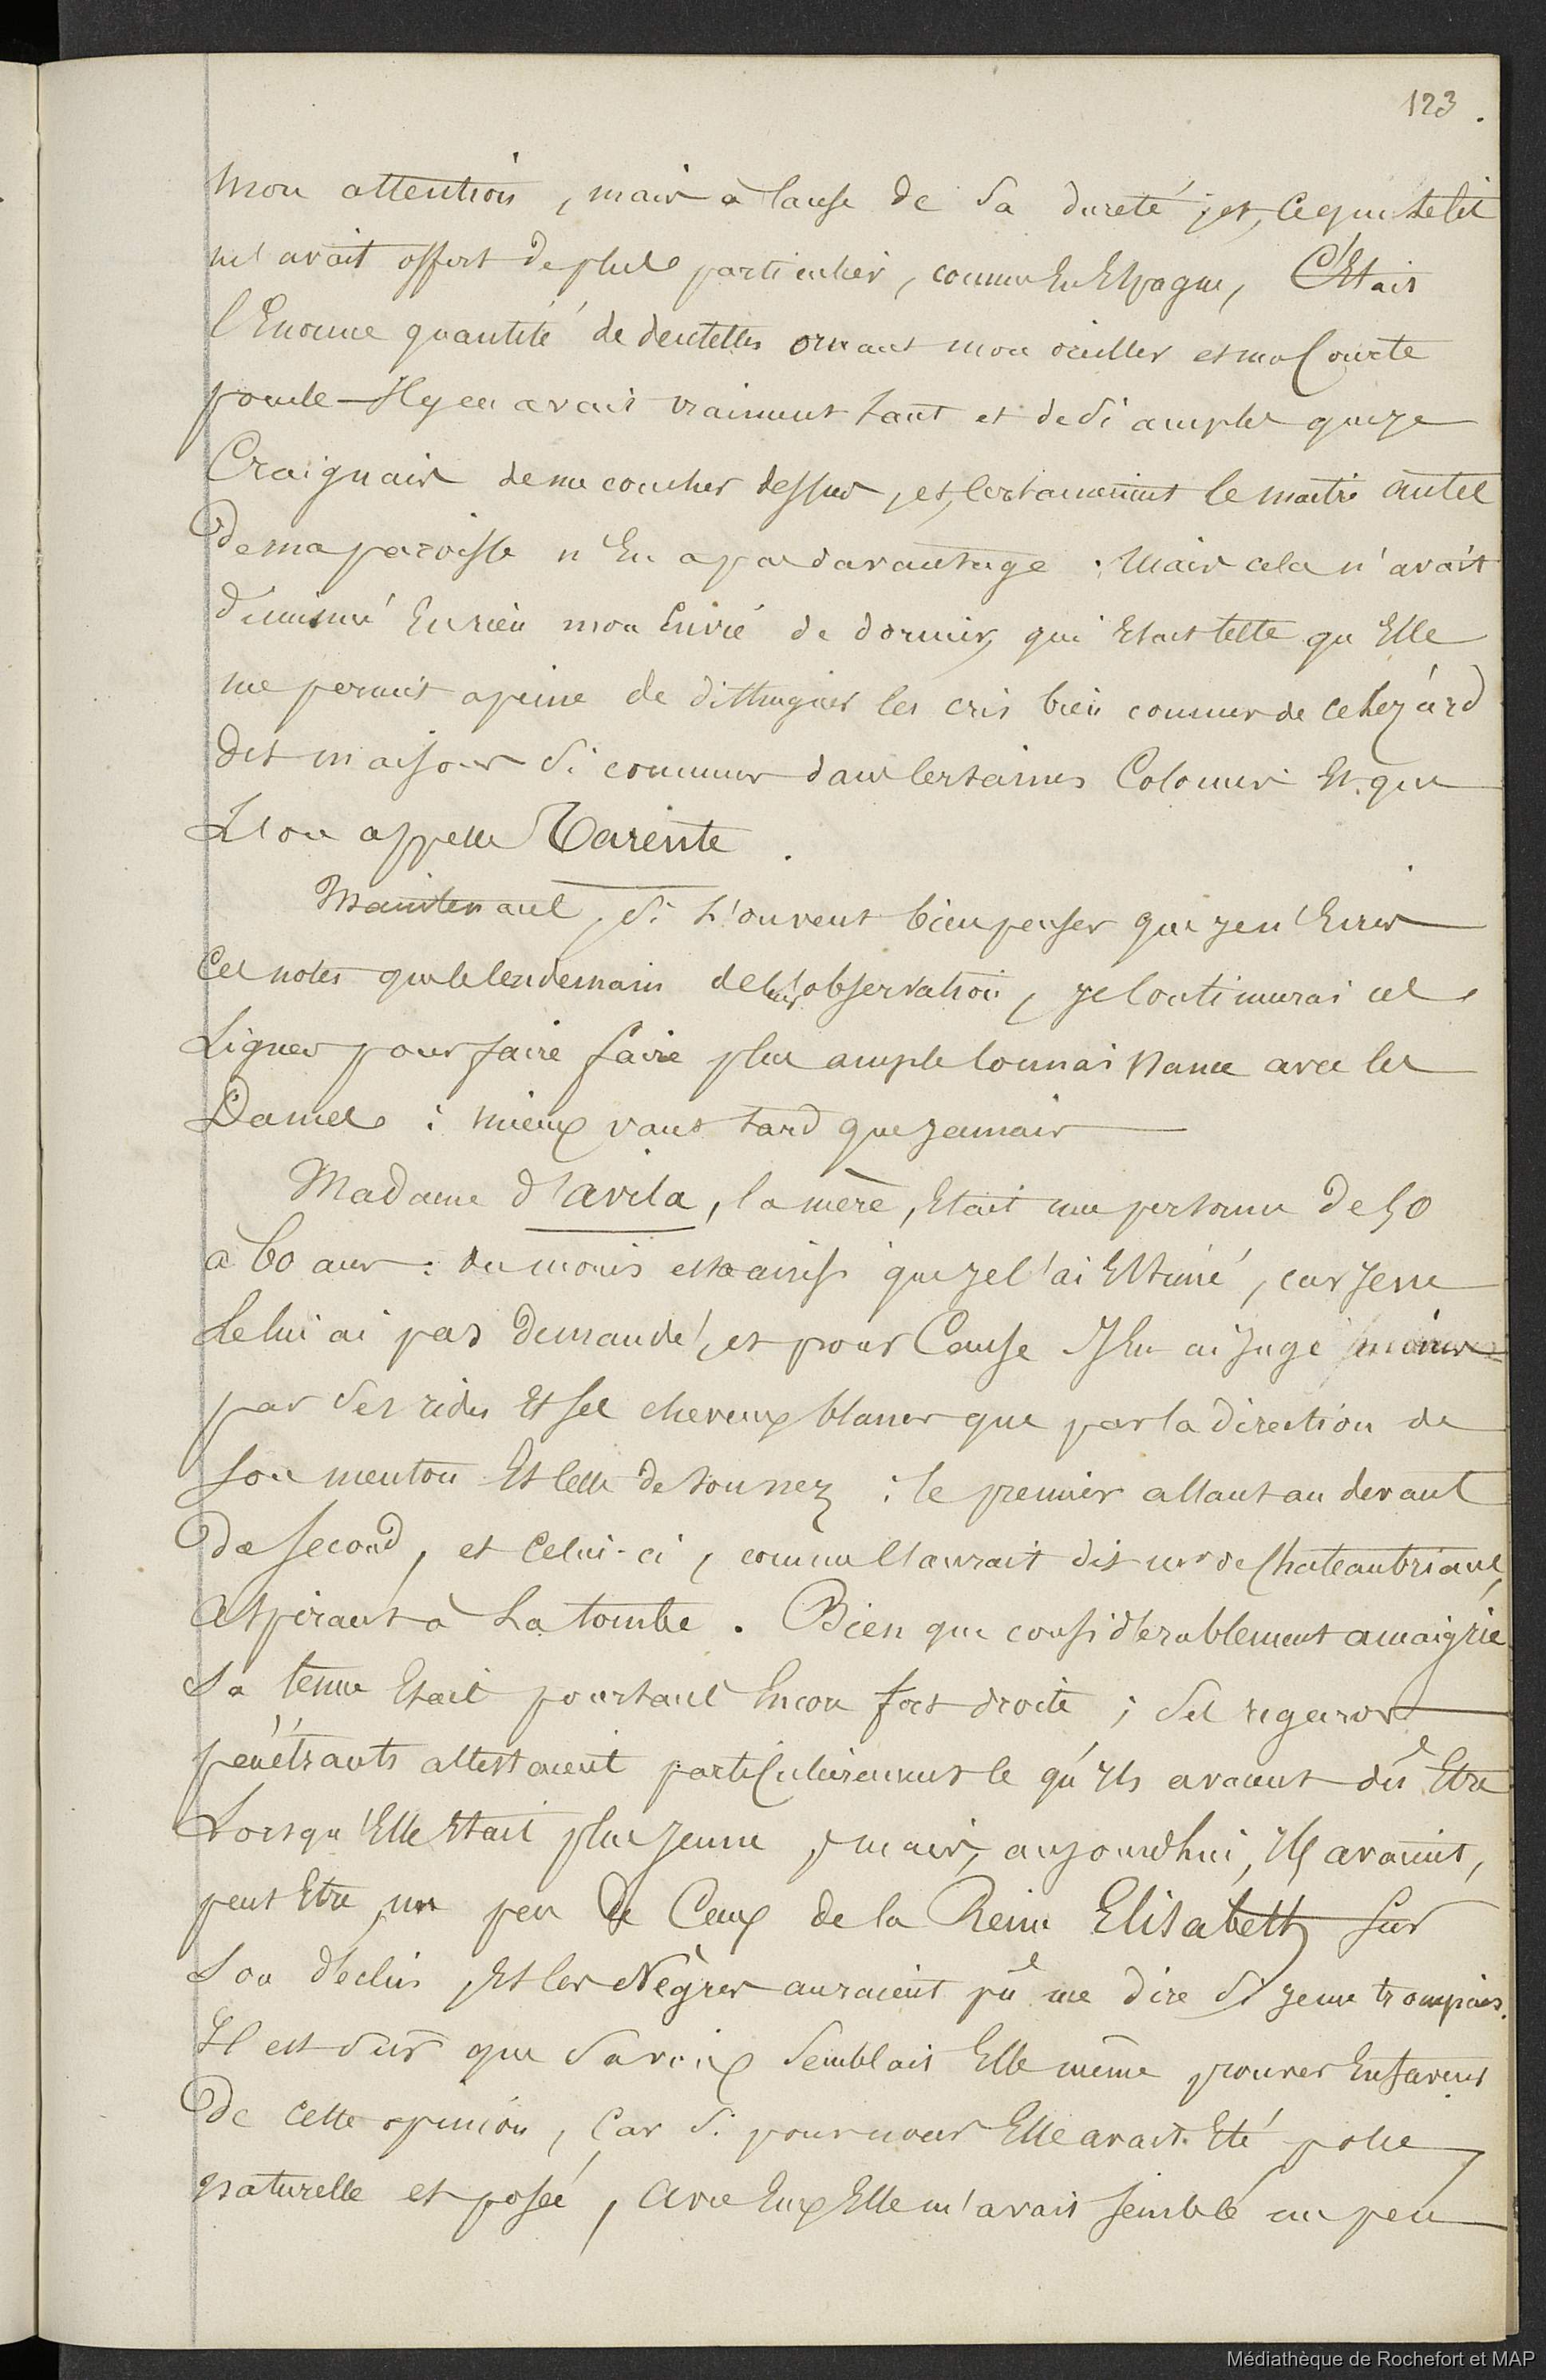 123.
mon attention, mais à cause de sa dureté ; et, ce que ce lit
m'avait offert de plus particulier, comme En Espagne, C'Etait
l'Enorme quantité de dentelles ornant mon oreiller et ma Courte
pointe — Il y en avait vraiment tant et de si amples que je
Craignais de me coucher dessus, et, certainement le maitre autel
De ma paroisse n'En a pas davantage. Mais cela n'avait
diminué En rien mon Envie de dormir, qui Etait telle qu'Elle
me permit a peine de distinguer les cris bien connus de ce lezard
des maisons si commun dans certaines Colonies Et que
L'on appelle Tarente.
Maintenant, si l'on veut bien penser que je n'Ecris
Ces notes que le lendemain de leur observation, je continurai ces
Lignes pour faire faire plus ample connaissance avec les
Dames : mieux vaut tard que jamais
Madame d'Avila, la mère, Etait une personne De 50
à 60 ans : du moins est-ce ainsi que je l'ai Estimé, car je ne
le lui ai pas demandé, et pour Cause Je l'en ai jugé moins
par ses rides Et ses cheveux blancs que par la direction de
son menton Et celle de son nez : le premier allant au devant
Du second, et Celui-ci, comme l'aurait dit mr de Chateaubriant,
Aspirant à La tombe. Bien que considerablement amaigrie
sa tenue Etait pourtant Encore fort droite ; ses regards
pénétrants attestaient particulierement ce qu'Ils avaient dû Etre
Lorsqu'Elle Etait plus jeune, mais, aujourdhui, Ils avaient,
peut Etre, un peu de Ceux de la Reine Elisabeth sur
son déclin, Et les Nègres auraient pû me dire si je me trompais.
Il est sûr que sa voix semblait Elle même prouver En faveur
De cette opinion, Car si pour nous Elle avait Eté polie
naturelle et posée, Avec Eux Elle m'avait semblé un peu
Médiathèque de Rochefort et MAP